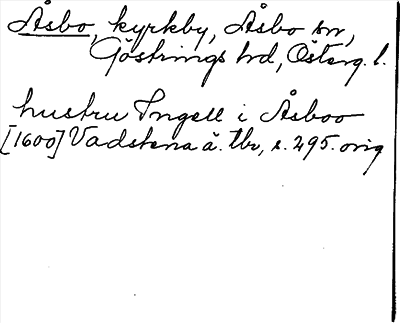 Åsbo, kyrkby, Åsbo sn,
Göstrings hd, Österg. l.
hustru Ingell i Åsboo
[1600] Vadstena ä. tb, s. 295. orig